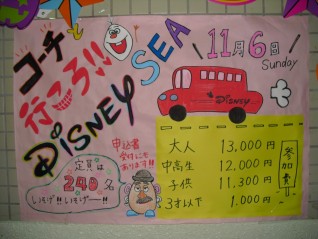 コーチ
行こう!!
DISNEY
SEA
11月6日
Sunday
DISNEY
申込書
受付にも
あります!!
定員は
240名
いそげ!! いそげー!!
大人 13,000円
中高生 12,000円
子供 11,300円
3才以下 1,000円
参加費